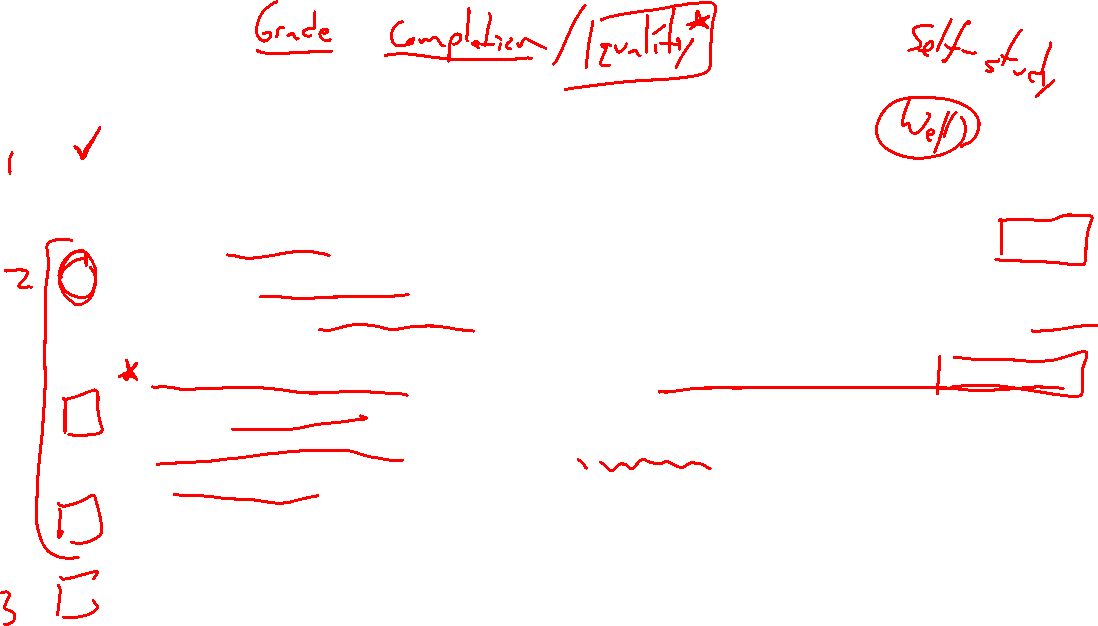 Grade Completion / Quality*
Self-study
Well
1 ✓
2
*
3